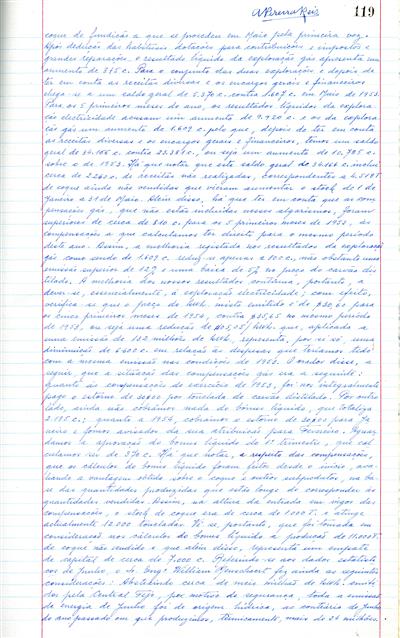 APereira Reis
119
coque de fundição a que se procedeu em Maio pela primeira vez.
Após dedução das habituais dotações para contribuições e impostos e
grandes reparações, o resultado líquido da exploração gás apresenta um
aumento de 315 c. Para o conjunto das duas explorações e depois de
ter em conta as receitas diversas e os encargos gerais e financeiros
chega-se a um saldo geral de 5.370 c. contra 1.607 c. em Maio de 1953.
Para os 5 primeiros meses do ano, os resultados líquidos da explora-
ção electricidade acusam um aumento de 9.920 c. e os da explora-
ção gás um aumento de 1.609 c. pelo que, depois de ter em conta
as receitas diversas e os encargos gerais e financeiros, temos um saldo
geral de 36.166 c. contra
sobre o de 1953. Há que notar que este saldo geral de 36.166 c. inclui
cerca de 2.260 c. de receitas não realizadas, correspondentes a
de coque ainda não vendidas que vieram aumentar o stock de 1 de
Janeiro a 31 de Maio. Além disso, há que ter em conta que as com-
pensações gás, que não estão incluídas nesses algarismos, foram
superiores de cerca de 810 c. para os 5 primeiros meses de 1953, às
compensações a que calculamos ter direito para o mesmo período
deste ano. Assim, a melhoria registada nos resultados da exploração
gás como sendo de 1.609 c. reduz-se apenas a 800 c., não obstante uma
emissão superior de 12% e uma baixa de 5% no preço do carvão des-
tilado. A melhoria dos nossos resultados continua, portanto, a
dever-se, essencialmente, à exploração electricidade; com efeito,
verifica-se que o preço do kWh. misto emitido é de $30,60 para
os cinco primeiros meses de 1954, contra $35,65 no mesmo período
de 1953, ou seja uma redução de $05,05/kWh. que, aplicada a
uma emissão de 132 milhões de kWh. representa, por si só, uma
diminuição de 6.600 c. em relação às despesas que teríamos tido
com a mesma emissão nas condições de 1953. O orador disse, a
seguir, que a situação das compensações gás era a seguinte:
quanto às compensações do exercício de 1953, foi-nos integralmente
pago o estorno de 20$00 por tonelada de carvão destilado. Por outro
lado, ainda não cobrámos nada do bonus líquido, que totaliza
2.195 c.; quanto a 1954, cobrámos o estorno de 20$01 para Ja-
neiro e fomos avisados da sua atribuição para Fevereiro. Aguar-
damos a aprovação do bonus líquido do 1º trimestre, que cal-
culamos ser de 370 c. Há que notar, a respeito das compensações,
que os cálculos do bonus líquido foram feitos desde o início, ava-
liando a vantagem obtida sobre o coque e outros subprodutos, na ba-
se das quantidades produzidas que estão longe de corresponder às
quantidades vendidas. Assim, na altura da entrada em vigor das
compensações, o stock de coque era de cerca de 1000 T. e atinge
actualmente 12.000 toneladas. Vê-se, portanto, que foi tomada em
consideração nos cálculos do bonus líquido a produção de 11.000 T.
de coque não vendido e que além disso, representa um empate
de capital de cerca de 7.000 c. Referindo-se aos dados estatísti-
cos de Junho, o Sr. Engº William Renchaert fez ainda as seguintes
considerações: Abatendo cerca de meio milhão de kWh. emiti-
dos pela Central Tejo, por motivo de segurança, toda a emissão
de energia de Junho foi de origem hídrica, ao contrário de Junho
do ano passado em que produzimos, tèrmicamente, mais de 24 milhões.